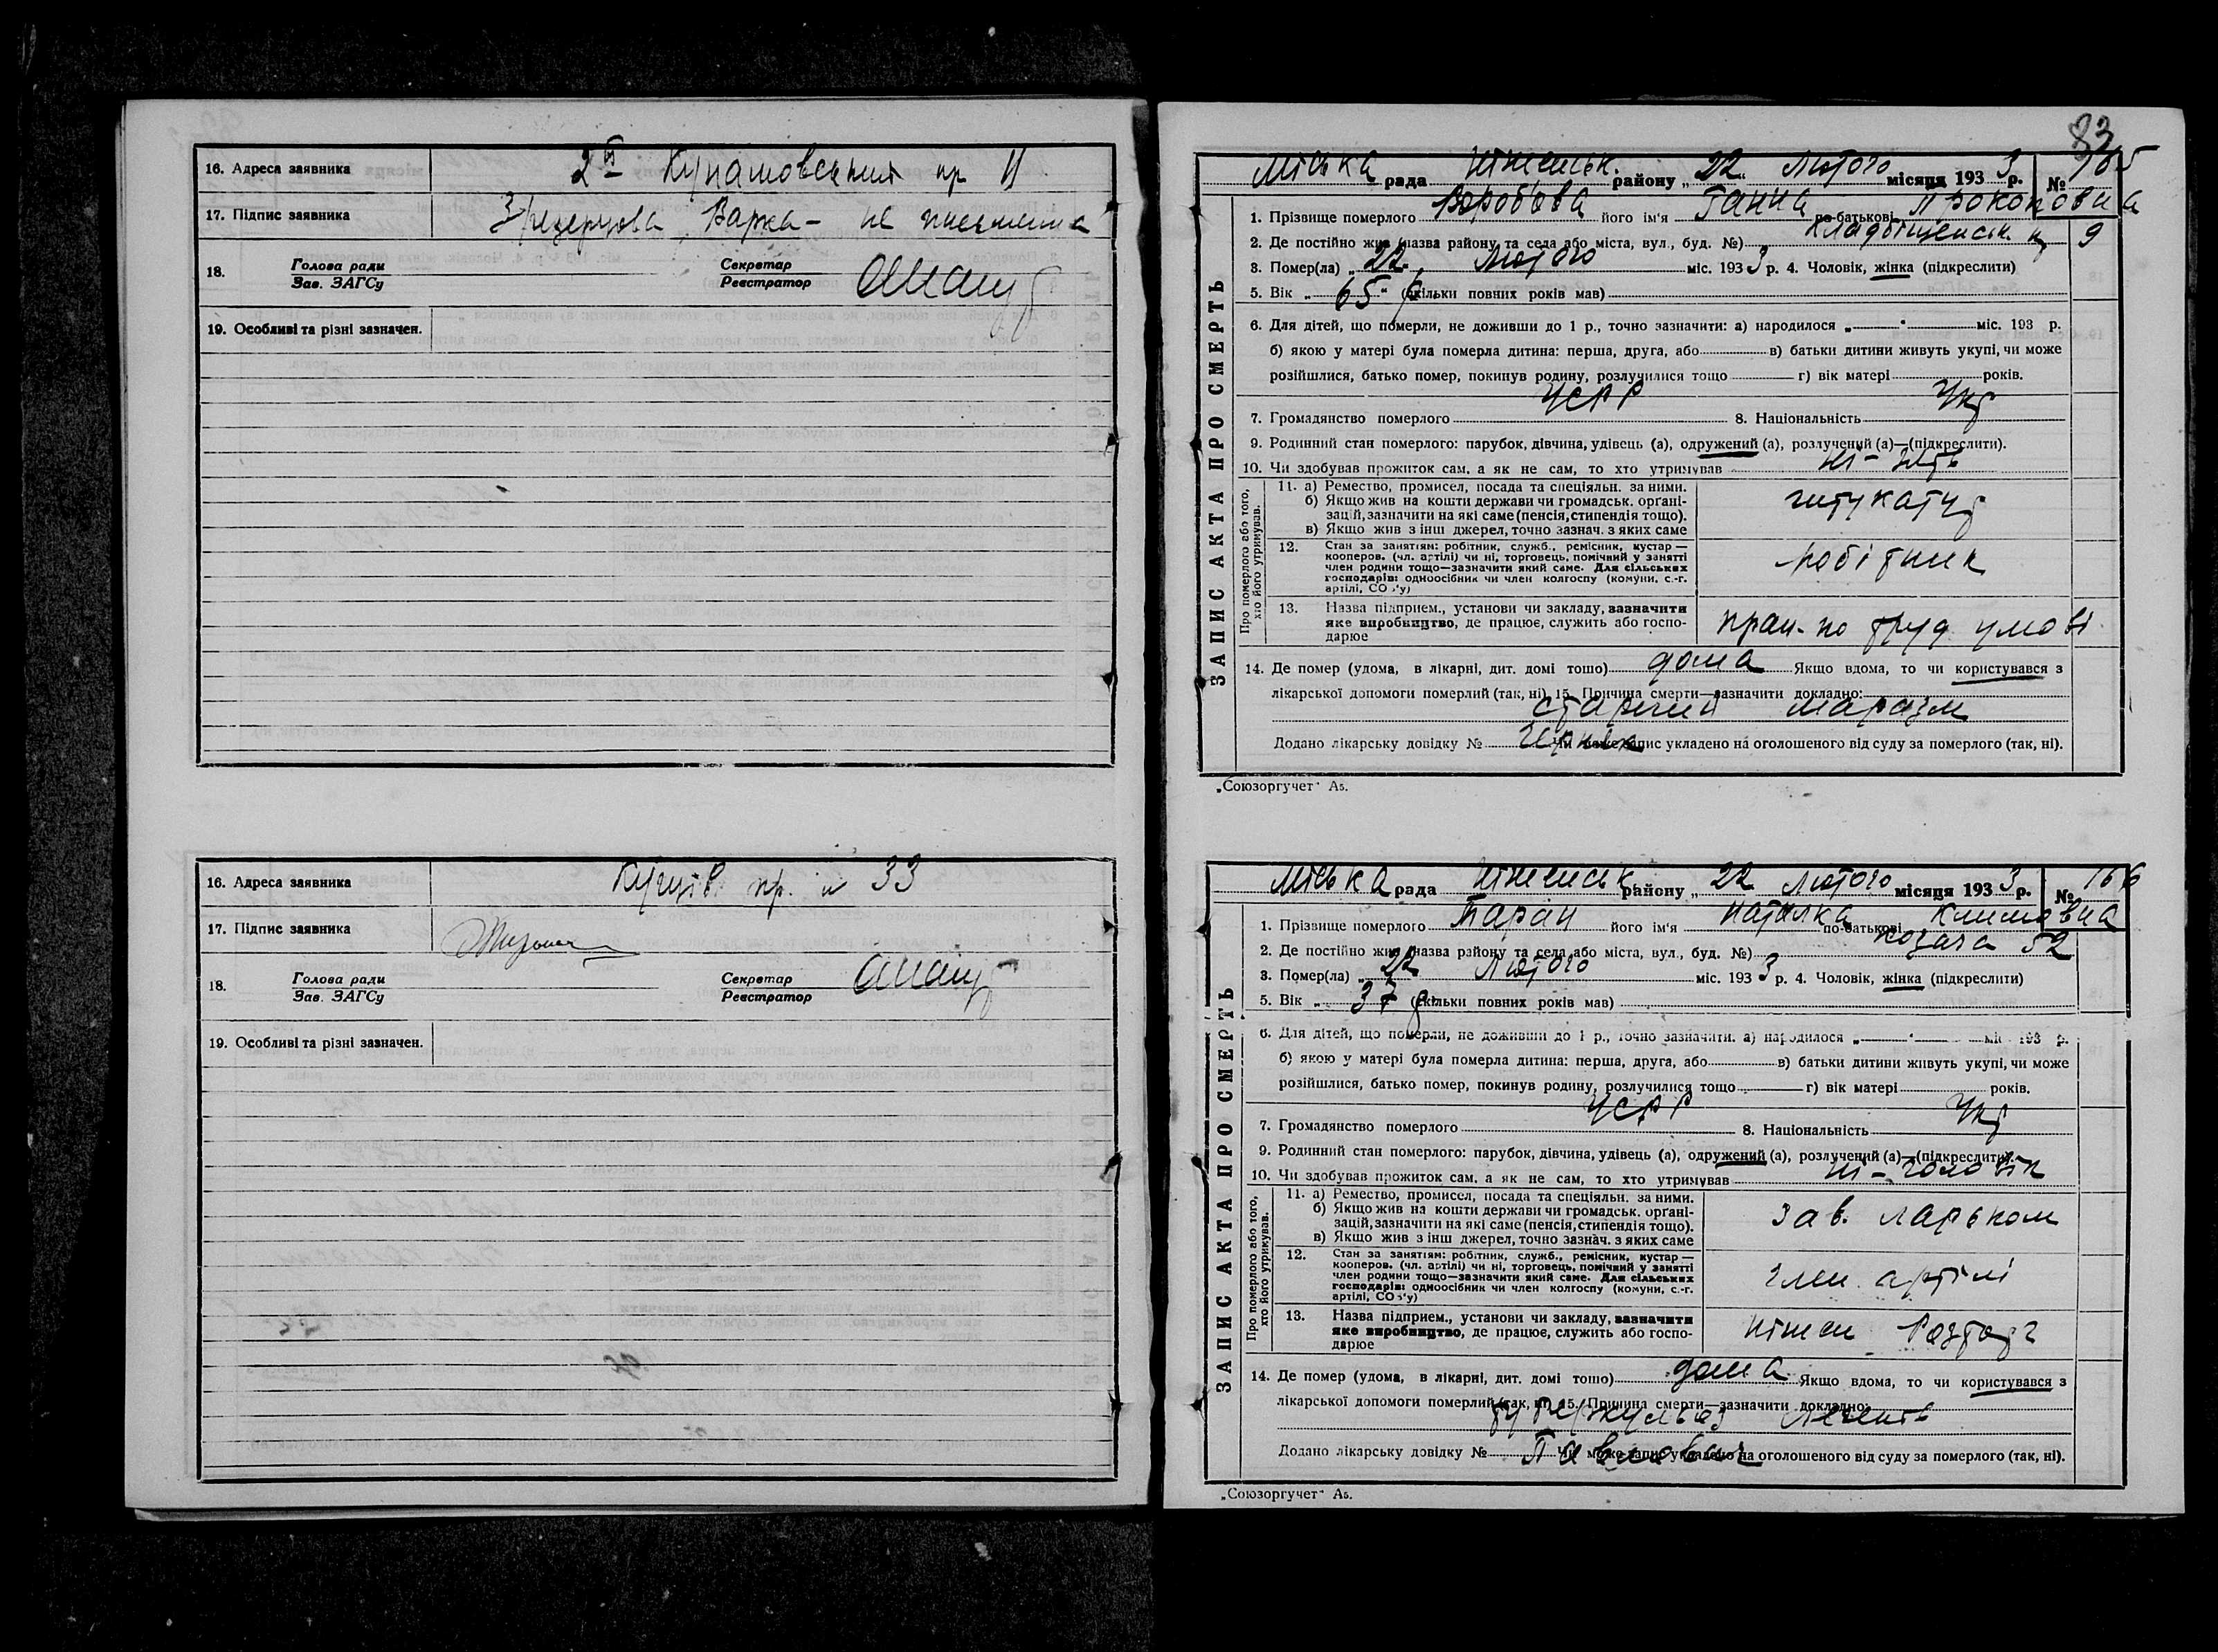 16. Адреса заявника 2й пр 11
17. Підпис заявника Варка — не писменна
18. Голова ради Секретар
Зав. ЗАГСу Реєстратор
19. Особливі та різні зазначен.
16. Адреса заявника пр. № 33
17. Підпис заявника
18. Голова ради Секретар
Зав. ЗАГСу Реєстратор
19. Особливі та різні зазначен.
83
ЗАПИС АКТА ПРО СМЕРТЬ
Міська рада Ніженськ. району „22“ Лютого місяця 1933 р. № 165
1. Прізвище померлого Воробьова його ім'я Ганна по-батькові Прокоповна
2. Де постійно жив (назва району та села або міста, вул., буд. №) 9
3. Помер(ла) „22“ Лютого міс. 1933 р. 4. Чоловік, жінка (підкреслити)
5. Вік „65“ р (скільки повних років мав)
6. Для дітей, що померли, не доживши до 1 р., точно зазначити: а) народилося „ “ міс. 193 р.
б) якою у матері була померла дитина: перша, друга, або в) батьки дитини живуть укупі, чи може
розійшлися, батько помер, покинув родину, розлучилися тощо г) вік матері років.
7. Громадянство померлого УСРР 8. Національність Укр
9. Родинний стан померлого: парубок, дівчина, удівець (а), одружений (а), розлучений (а)—(підкреслити).
10. Чи здобував прожиток сам, а як не сам, то хто утримував ні — зять
Про померлого або того, хто його утримував.
11. а) Ремество, промисел, посада та спеціяльн. за ними.
б) Якщо жив на кошти держави чи громадськ. органі-
зацій, зазначити на які саме (пенсія, стипендія тощо).
в) Якщо жив з інш джерел, точно зазнач. з яких саме
штукатур
12. Стан за занятіям: робітник, служб., ремісник, кустар —
кооперов. (чл. артілі) чи ні, торговець, помічний у занятті
член родини тощо—зазначити який саме. Для сільських
господарів: одноосібник чи член колгоспу (комуни, с.-г.
артілі, СОЗ'у)
робітник
13. Назва підприєм., установи чи закладу, зазначити
яке виробництво, де працює, служить або госпо-
дарює
прац. по труд умові
14. Де помер (удома, в лікарні, дит. домі тощо) дома Якщо вдома, то чи користувався з
лікарської допомоги померлий (так, ні) 15. Причина смерти—зазначити докладно:
старечий маразм
Додано лікарську довідку № Чи може запис укладено на оголошеного від суду за померлого (так, ні).
„Союзоргучет“ А5.
ЗАПИС АКТА ПРО СМЕРТЬ
Міська рада Ніженськ району „22 Лютого місяця 1933 р. № 166
1. Прізвище померлого Баран його ім'я Наталка по-батькові Климовна
2. Де постійно жив (назва району та села або міста, вул., буд. №) 52
3. Помер(ла) „22 Лютого міс. 1933 р. 4. Чоловік, жінка (підкреслити)
5. Вік „37 р (скільки повних років мав)
6. Для дітей, що померли, не доживши до 1 р., точно зазначити: а) народилося „ “ міс 193 р.
б) якою у матері була померла дитина: перша, друга, або в) батьки дитини живуть укупі, чи може
розійшлися, батько помер, покинув родину, розлучилися тощо г) вік матері років.
7. Громадянство померлого УСРР 8. Національність Укр
9. Родинний стан померлого: парубок, дівчина, удівець (а), одружений (а), розлучений (а)—(підкреслити).
10. Чи здобував прожиток сам, а як не сам, то хто утримував ні — чоловік
Про померлого або того, хто його утримував.
11. а) Ремество, промисел, посада та спеціяльн. за ними.
б) Якщо жив на кошти держави чи громадськ. органі-
зацій, зазначити на які саме (пенсія, стипендія тощо).
в) Якщо жив з інш джерел, точно зазнач. з яких саме
зав. ларьком
12. Стан за занятіям: робітник, служб., ремісник, кустар —
кооперов. (чл. артілі) чи ні, торговець, помічний у занятті
член родини тощо—зазначити який саме. Для сільських
господарів: одноосібник чи член колгоспу (комуни, с.-г.
артілі, СОЗ'у)
член артілі
13. Назва підприєм., установи чи закладу, зазначити
яке виробництво, де працює, служить або госпо-
дарює
14. Де помер (удома, в лікарні, дит. домі тощо) дома Якщо вдома, то чи користувався з
лікарської допомоги померлий (так, ні) 15. Причина смерти—зазначити докладно:
туберкульоз легенів
Додано лікарську довідку № Чи може запис укладено на оголошеного від суду за померлого (так, ні).
„Союзоргучет“ А5.